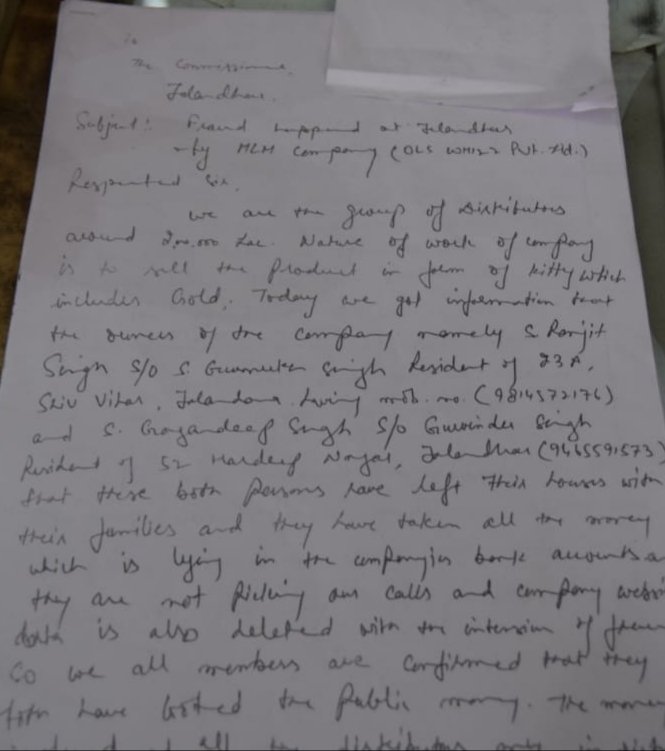 To
The Commissioner,
Jalandhar.
Subject: Fraud happend at Jalandhar
by MLM Company (OLS WHIZZ Pvt. Ltd.)
Respected Sir,
We are the group of Distributors
around 2,00,000 Lac. Nature of work of company
is to sell the Product in form of kitty which
includes Gold. Today we got information that
the owners of the company namely S. Ranjit
Singh S/o S. Singh Resident of 23A,
Shiv Vihar, Jalandhar having mob. no. (9814572176)
and S. Gagandeep Singh S/o Gurvinder Singh
Resident of 52 Hardeep Nagar, Jalandhar (9465591573)
that these both persons have left their houses with
their families and they have taken all the money
which is lying in the company's bank accounts
they are not picking our calls and company
data is also deleted with the intension of
So we all members are confirmed that they
both have looted the Public money. The
all the distributors